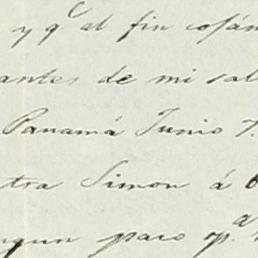 y q.e al fin
antes de mi sal
Panamá Junio 7.
tra Simon á
ngun paro op.a